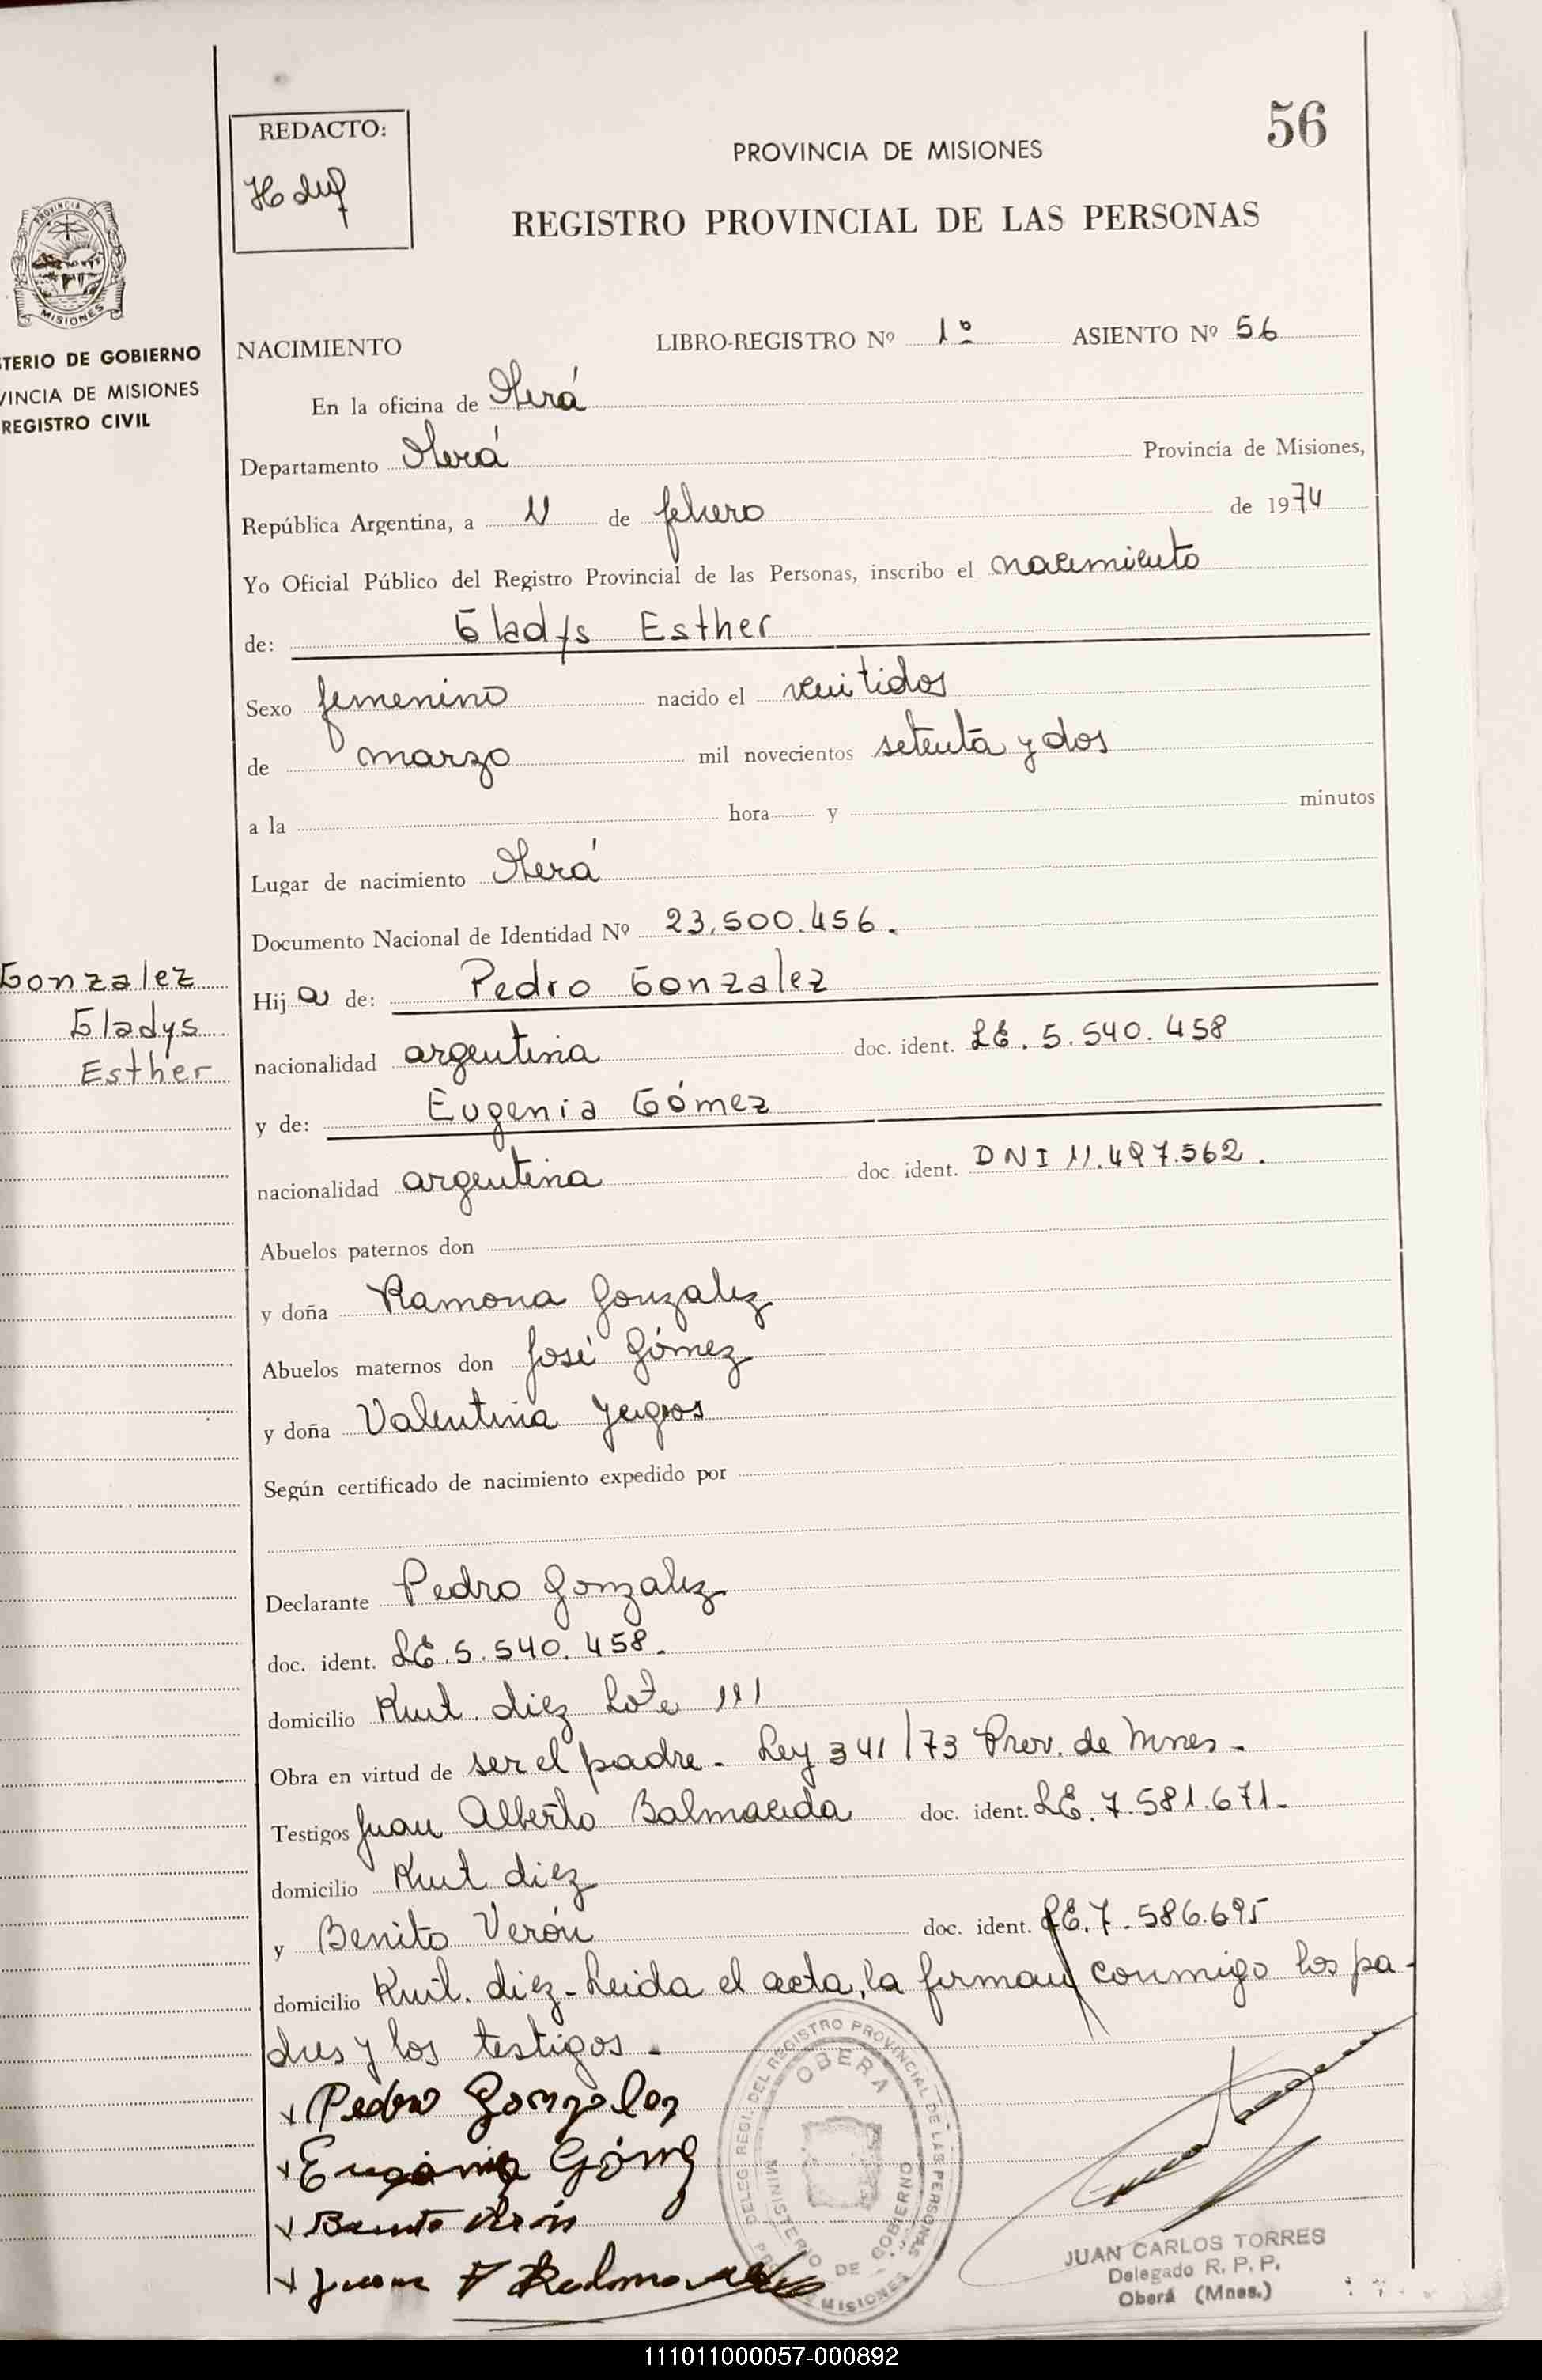 56
REDACTO:
PROVINCIA DE MISIONES
REGISTRO PROVINCIAL DE LAS PERSONAS
PROVINCIA DE
MISIONES
TERIO DE GOBIERNO
VINCIA DE MISIONES
REGISTRO CIVIL
Gonzalez
Gladys
Esther
NACIMIENTO LIBRO-REGISTRO Nº 1º ASIENTO Nº 56
En la oficina de Oberá
Departamento Oberá Provincia de Misiones,
República Argentina, a 11 de febrero de 1974
Yo Oficial Público del Registro Provincial de las Personas, inscribo el nacimiento
de: Gladys Esther
Sexo femenino nacido el veintidos
de marzo mil novecientos setenta y dos
a la hora y minutos
Lugar de nacimiento Oberá
Documento Nacional de Identidad Nº 23.500.456.
Hij a de: Pedro Gonzalez
nacionalidad argentina doc. ident. LE. 5.540.458
y de: Eugenia Gómez
nacionalidad argentina doc ident. DNI 11.497.562.
Abuelos paternos don
y doña Ramona Gonzalez
Abuelos maternos don José Gómez
y doña Valentina Yegros
Según certificado de nacimiento expedido por
Declarante Pedro Gonzalez
doc. ident. LE.5.540.458.
domicilio Kmt. diez Lote 111
Obra en virtud de ser el padre. Ley 341/73 Prov. de Mnes.
Testigos Juan Alberto Balmaceda doc. ident. LE.7.581.671.
domicilio Kmt diez
y Benito Verón doc. ident. LE.7.586.695
domicilio Kmt. diez - Leida el acta, la firman conmigo los pa-
dres y los testigos.
Pedro Gonzalez
Eugenia Gómez
Benito Verón
Juan A Balmaceda
DELEG. REGL. DEL REGISTRO PROVINCIAL DE LAS PERSONAS
OBERA
MINISTERIO DE GOBIERNO
MISIONES
JUAN CARLOS TORRES
Delegado R. P. P.
Oberá (Mnes.)
111011000057-000892